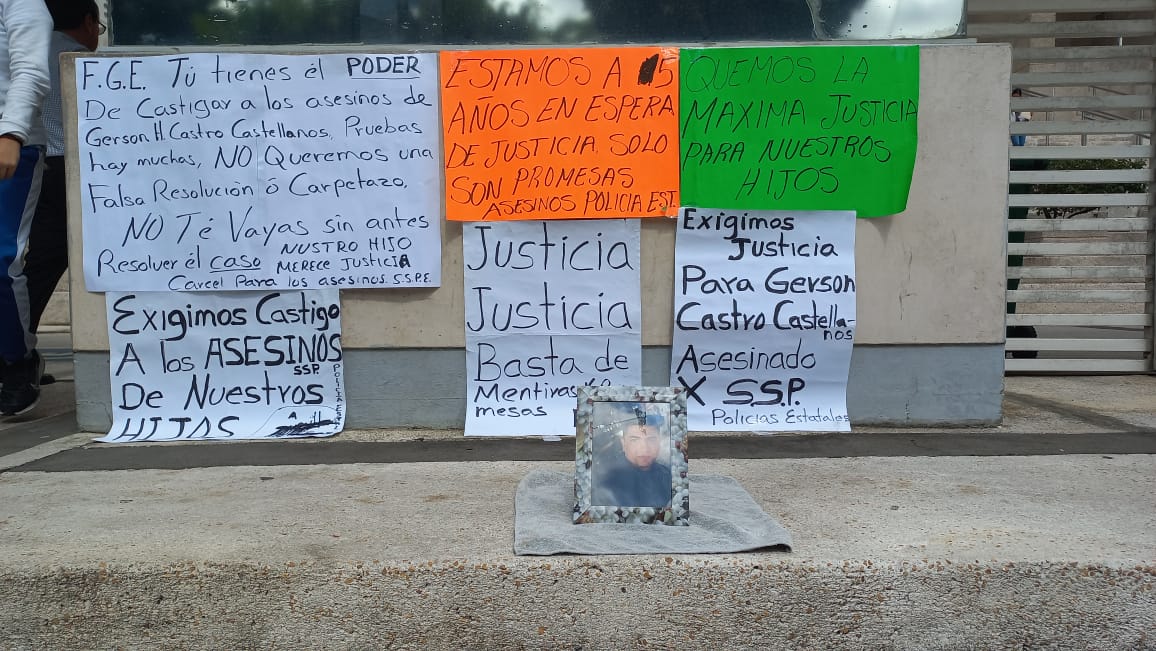 F.G.E. Tú tienes él PODER
De Castigar a los asesinos de
Gerson H. Castro Castellanos, Pruebas
hay muchas, NO Queremos una
Falsa Resolución ó Carpetazo,
NO Té Vayas sin antes
Resolver él caso NUSTRO HIJO
MERECE JUSTICIA
Carcel Para los asesinos. S.S.P.E.
ESTAMOS A 5
AÑOS EN ESPERA
DE JUSTICIA, SOLO
SON PROMESAS
ASESINOS POLICIA EST.
QUEMOS LA
MAXIMA JUSTICIA
PARA NUESTROS
HIJOS
Exigimos Castigo
A los ASESINOS
SSP.
De Nuestros
HIJOS
Justicia
Justicia
Basta de
Mentiras
mesas
Exigimos
Justicia
Para Gerson
Castro Castella-
nos
Asesinado
X S.S.P.
Policias Estatales